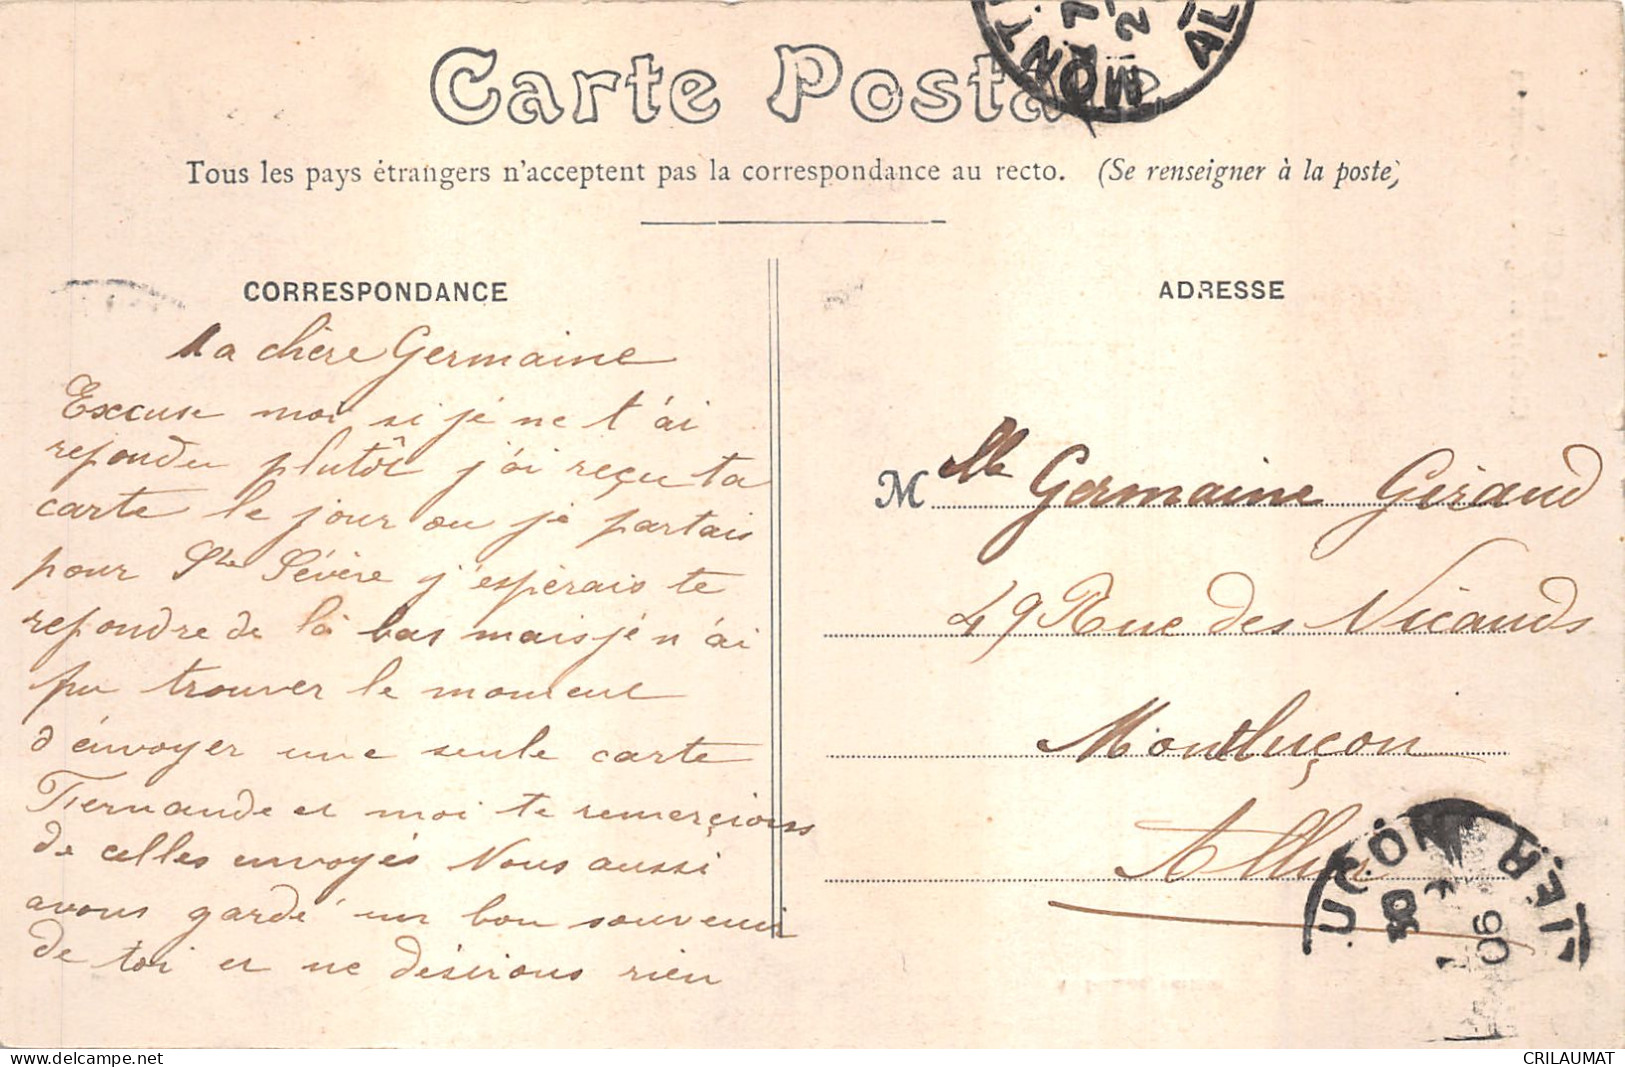 Carte Postale
Tous les pays étrangers n'acceptent pas la correspondance au recto. (Se renseigner à la poste)
CORRESPONDANCE
Ma chère Germaine
Excuse moi si jé ne t'ai
repondu plutôt j'ai reçu ta
carte le jour ou jé partais
pour Ste Sévère j'espèrais te
repondre de là bas mais jé n'ai
pu trouver le moment
d'énvoyer une seule carte
Fernande et moi te remerçions
de celles envoyés Nous aussi
avons gardé un bon souvenir
de toi et ne désirons rien
ADRESSE
Mlle Germaine Giraud
49 Rue des Nicauds
Montluçon
Allier
MONT AL
7
2
UÇON
06
IER
CRILAUMAT